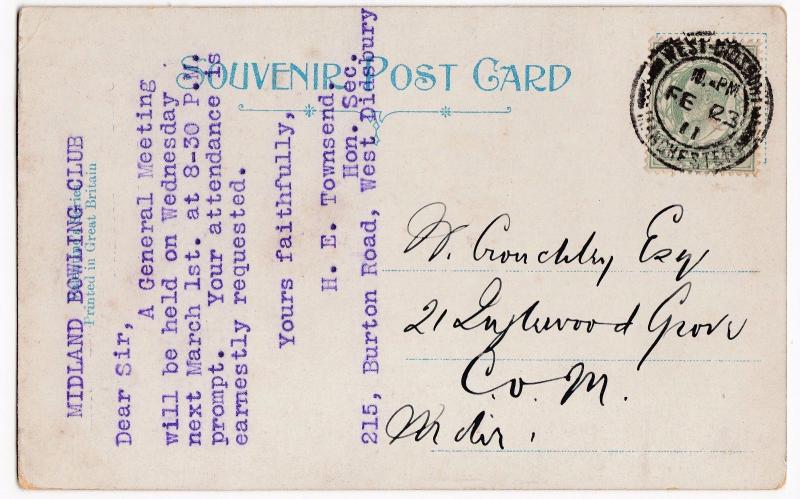 SOUVENIR POST CARD
Printed in Great Britain
MIDLAND BOWLING CLUB
Dear Sir,
A General Meeting
will be held on Wednesday
next March 1st. at 8-30 P.M.
prompt. Your attendance is
earnestly requested.
Yours faithfully,
H. E. Townsend.
Hon. Sec.
215, Burton Road, West Didsbury
WEST-DIDSBURY
PM
FE 23
11
MANCHESTER
W. Crouchley Esq
21 Inglewood Grove
C. o. M.